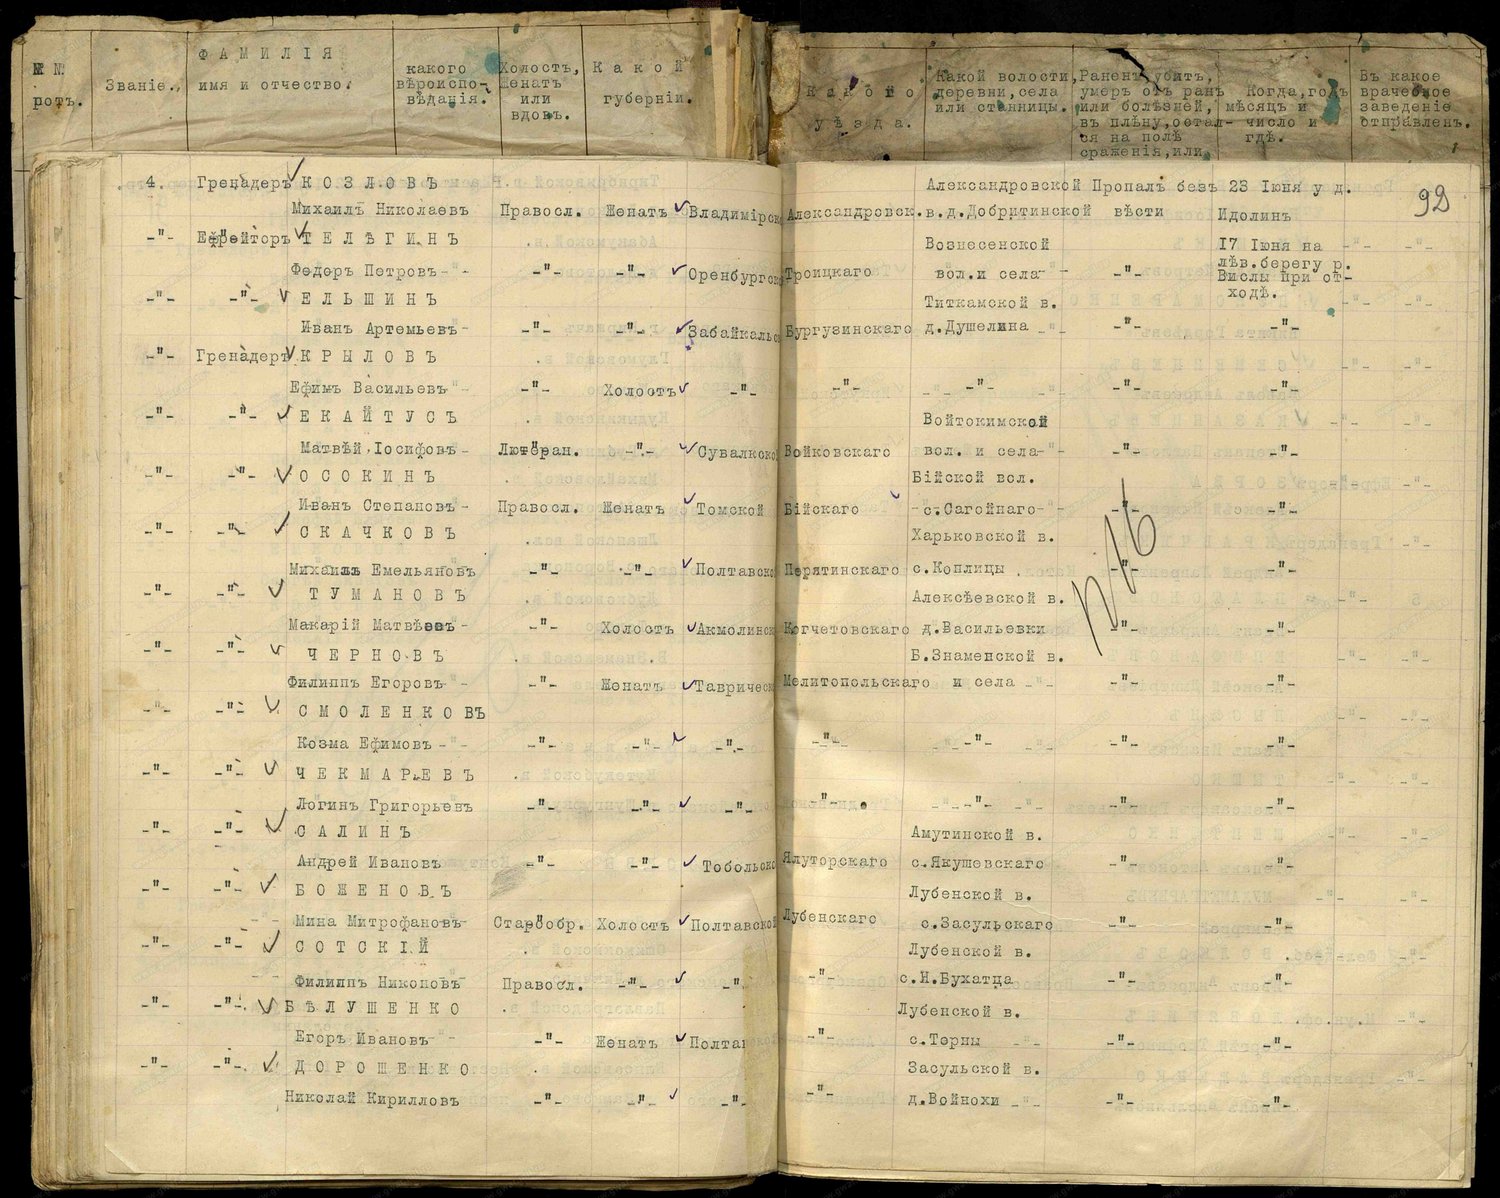 № № ротъ.
Званіе.
ФАМИЛІЯ имя и отчество.
какого вѣроиспо-вѣданія.
Холостъ, Женатъ или вдовъ.
Какой губерніи.
Какого уѣзда.
Какой волости, деревни, села или станницы.
Раненъ, убитъ, умеръ отъ ранъ или болѣзней, въ плѣну, остал-ся на полѣ сраженія, или
Когда, годъ мѣсяцъ и число и гдѣ.
Въ какое врачебное заведеніе отправленъ.
92
4. Гренадеръ КОЗЛОВЪ Александровской Пропалъ безъ 23 Іюня у д.
Михаилъ Николаевъ Правосл. Женатъ Владимірск Александровск. в.д.Добритинской вѣсти Идолинъ
-"- Ефрейторъ ТЕЛѢГИНЪ Вознесенской 17 Іюня на
лѣв.берегу р.
Федоръ Петровъ -"- -"- Оренбургск Троицкаго вол.и села -"- Вислы при от-
-"- -"- ЕЛЬШИНЪ Титкамской в. ходѣ.
Иванъ Артемьевъ -"- -"- Забайкальс Бургузинскаго д.Душелина -"- -"-
-"- Гренадеръ КРЫЛОВЪ
Ефимъ Васильевъ -"- Холостъ -"- -"- -"- -"- -"-
-"- -"- ЕКАЙТУСЪ Войтокимской
Матвѣй Іосифовъ Лютеран. -"- Сувалкско Войковскаго вол. и села -"- -"-
-"- -"- ОСОКИНЪ Бійской вол.
Иванъ Степановъ Правосл. Женатъ Томской Бійскаго с.Сагойпаго -"- -"-
-"- -"- СКАЧКОВЪ Харьковской в.
Михаилъ Емельяновъ -"- -"- Полтавско Перятинскаго с.Коплицы -"- -"-
-"- -"- ТУМАНОВЪ Алексѣевской в.
Макарій Матвѣевъ -"- Холостъ Акмолинск Когчетовскаго д.Васильевки -"- -"-
-"- -"- ЧЕРНОВЪ Б.Знаменской в.
Филиппъ Егоровъ -"- Женатъ Таврическ Мелитопольскаго и села -"- -"-
-"- -"- СМОЛЕНКОВЪ
Козма Ефимовъ -"- -"- -"- -"- -"- -"- -"-
-"- -"- ЧЕКМАРЕВЪ
Логинъ Григорьевъ -"- -"- -"- -"- -"- -"- -"-
-"- -"- САЛИНЪ Амутинской в.
Андрей Ивановъ -"- -"- Тобольско Ялуторскаго с.Якушевскаго -"- -"-
-"- -"- БОЖЕНОВЪ Лубенской в.
Мина Митрофановъ Старообр. Холостъ Полтавской Лубенскаго с.Засульскаго -"- -"-
-"- -"- СОТСКІЙ Лубенской в.
Филиппъ Никоновъ Правосл. -"- -"- -"- с.Н.Бухатца -"- -"-
-"- -"- БѢЛУШЕНКО Лубенской в.
Егоръ Ивановъ -"- Женатъ Полтав -"- с.Терны -"- -"-
-"- -"- ДОРОШЕНКО Засульской в.
Николай Кирилловъ -"- -"- -"- -"- д.Войнохи -"- -"-